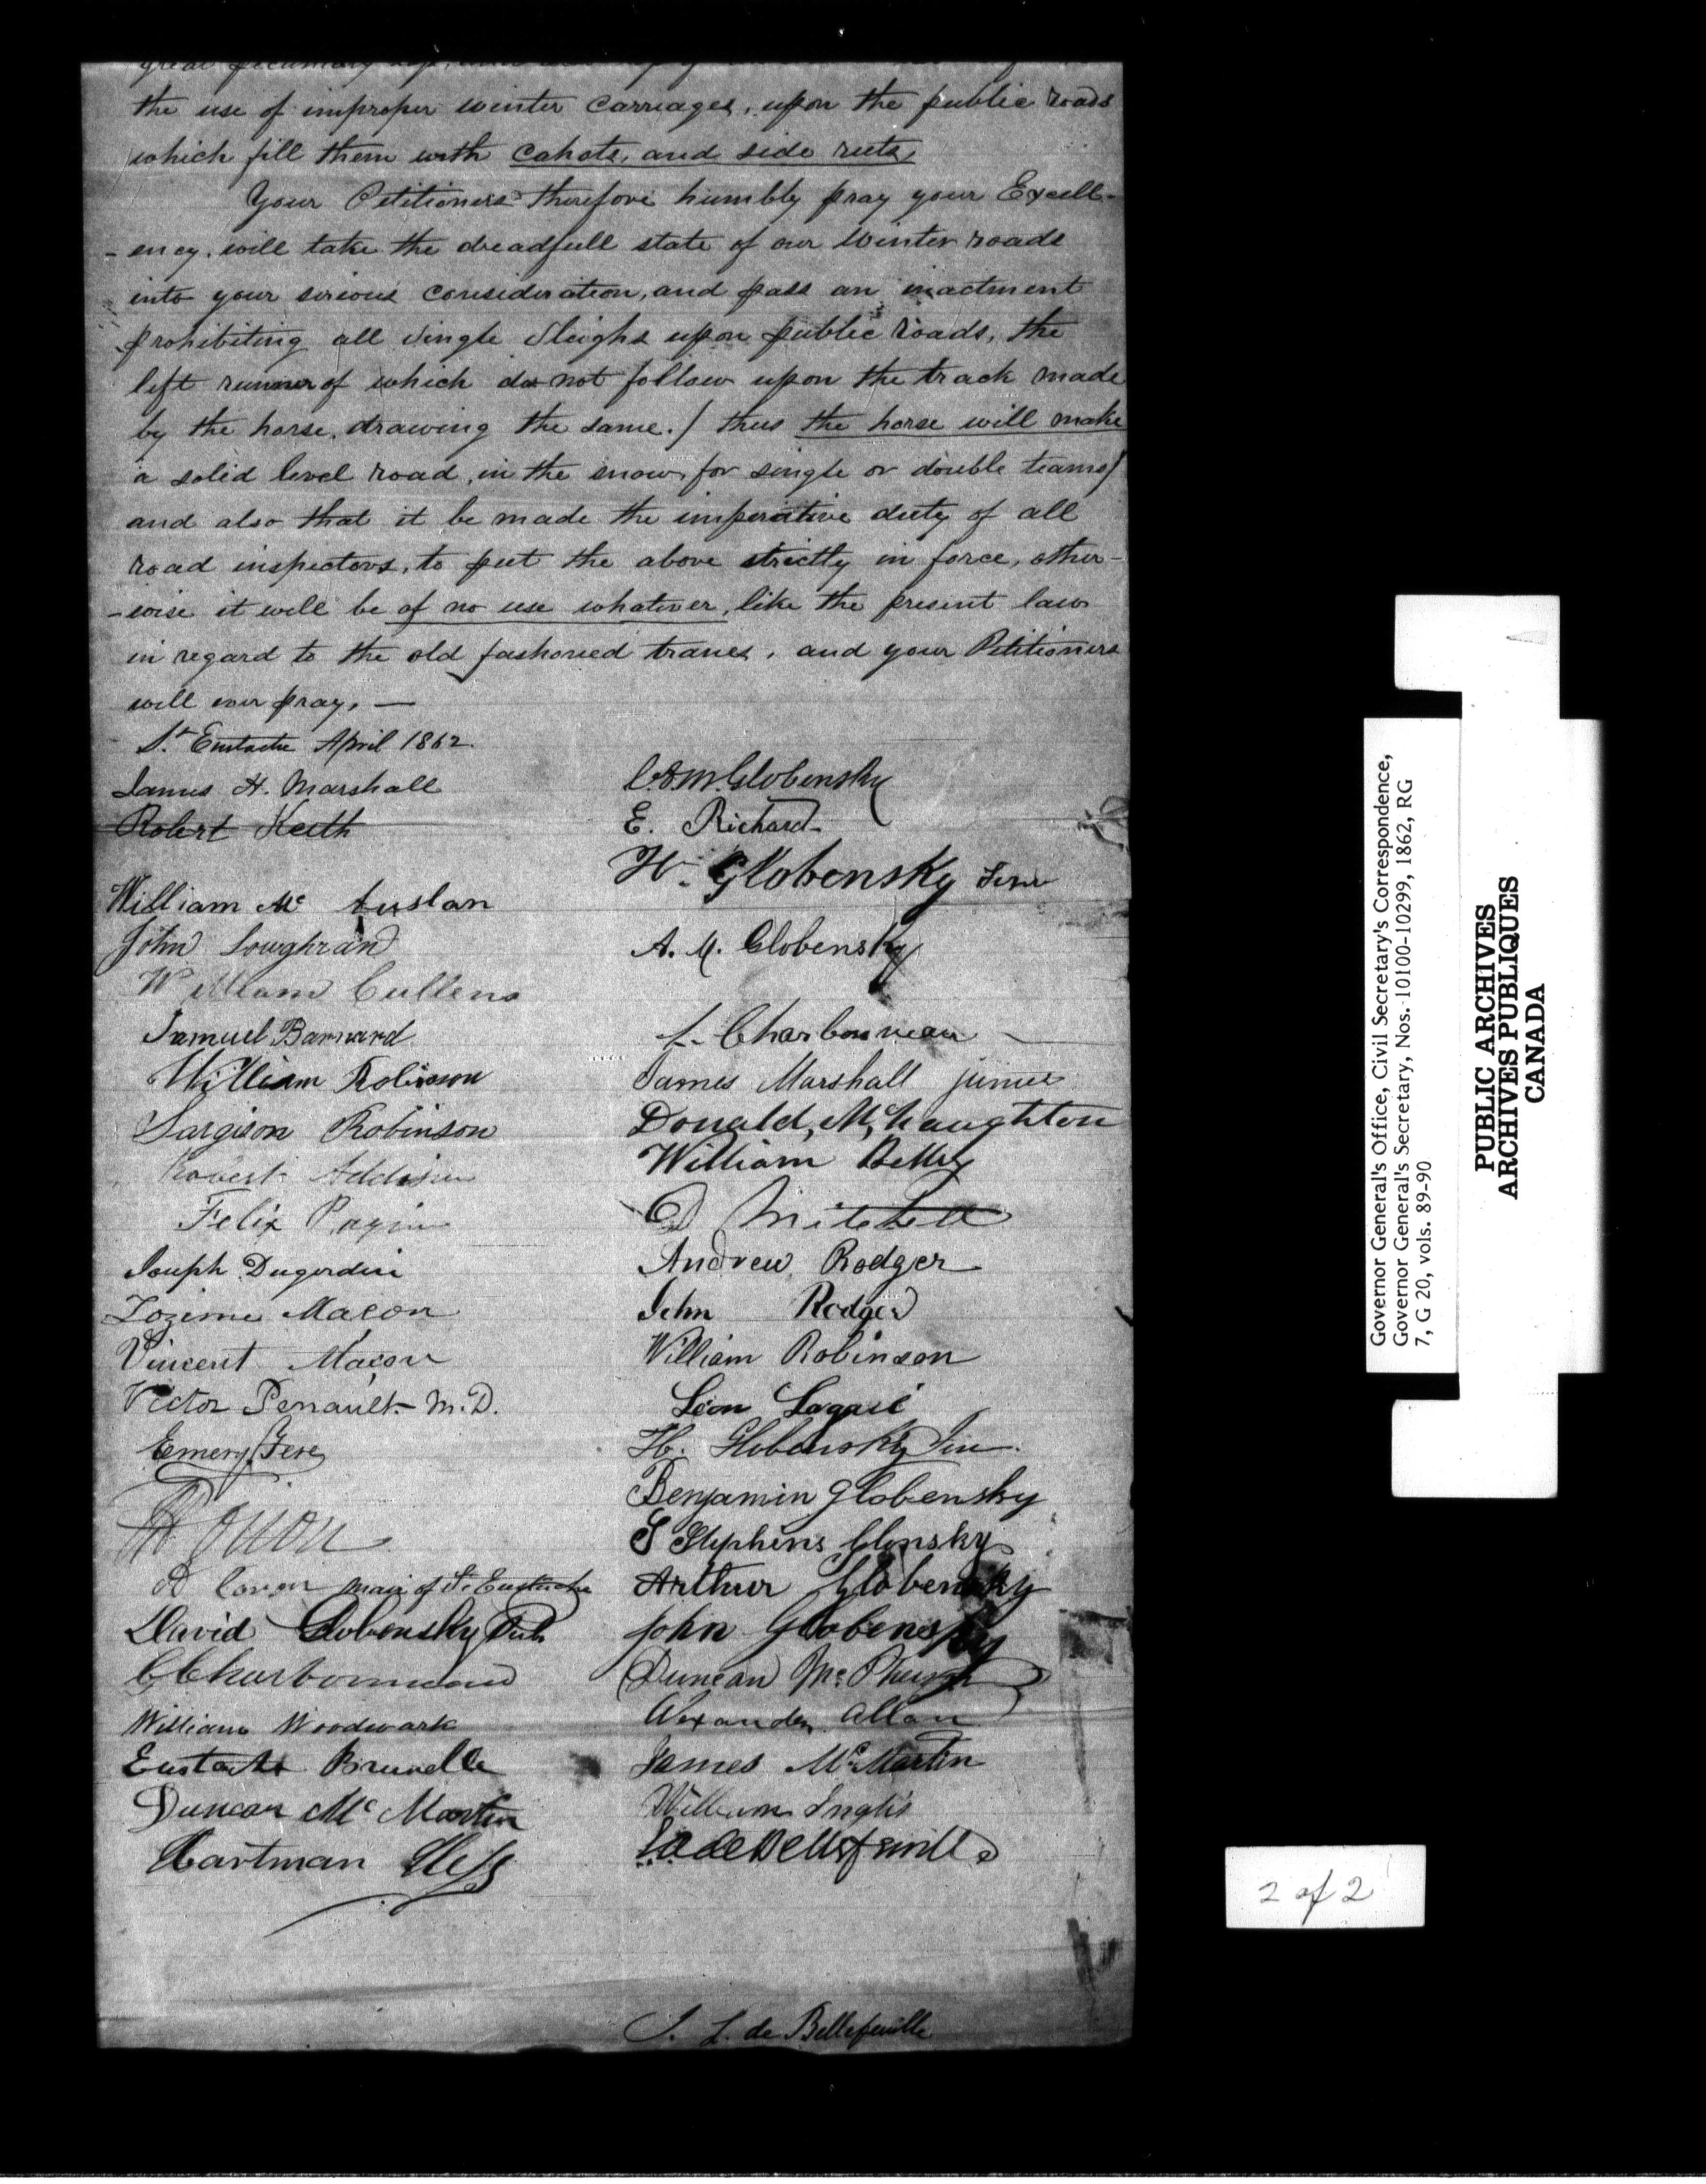 the use of improper winter carriages, upon the public roads
which fill them with cahots, and side ruts,
Your Petitioners therefore humbly pray your Excell-
-ency, will take the dreadfull state of our Winter roads
into your serious consideration, and pass an inactment
prohibiting all Single Sleighs upon public roads, the
left runner of which do not follow upon the track made
by the horse, drawing the same. / thus the horse will make
a solid level road, in the snow, for single or double teams/
and also that it be made the imperitive duty of all
road inspectors, to put the above strictly in force, other-
-wise it will be of no use whatever, like the present law
in regard to the old fashoned tranes, and your Petitioners
will ever pray, —
St Eustache April 1862.
James H. Marshall
Robert Keith
William Mc Auslan
John Loughran
William Cullens
Samuel Barnard
William Robinson
Sargison Robinson
Robert Addison
Felix
Joseph
Zozime Macon
Vincent Maçon
Victor Perrault M.D.
Emery Fere
maire of St Eustache
David Globensky
C Charbonneau
William Woodwark
Eustache Brunelle
Duncan Mc Martin
Hartman Hess
C.A.M. Globensky
E. Richard
H. Globensky
A. M. Globensky
Charbonneau
James Marshall junier
Donald McNaughton
William
D Mitchell
Andrew Rodger
John Rodger
William Robinson
Léon Lagacé
H. Globensky Jun.
Benjamin Globensky
S Stephens
Arthur Globensky
John Globensky
Duncan Mc
Alexander Allan
James McMartin
William Inglis
de Bellefeuille
J. L. de Bellefeuille
Governor General's Office, Civil Secretary's Correspondence,
Governor General's Secretary, Nos. 10100-10299, 1862, RG
7, G 20, vols. 89-90
PUBLIC ARCHIVES
ARCHIVES PUBLIQUES
CANADA
2 of 2